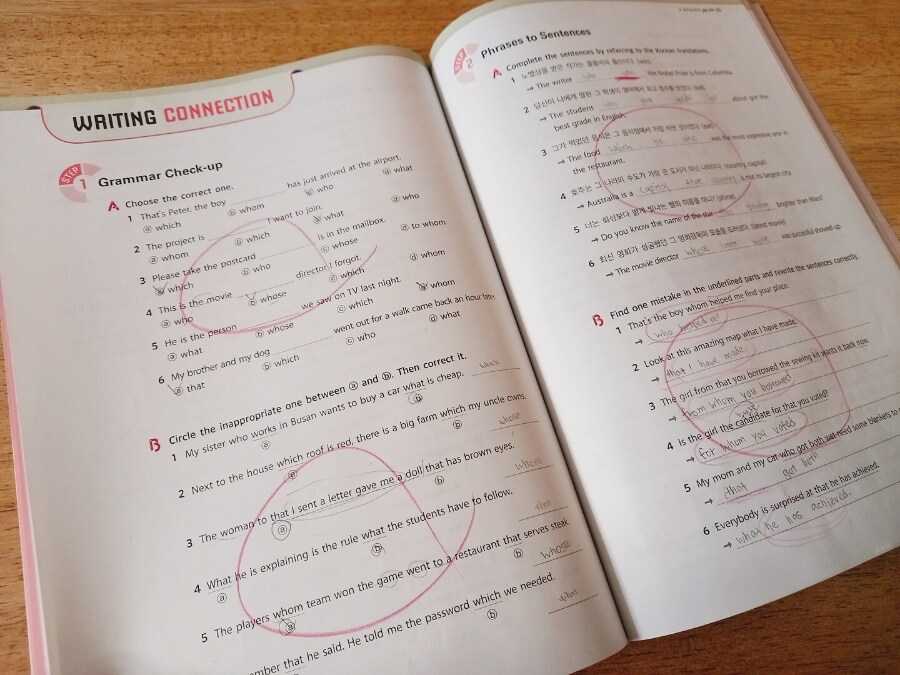 WRITING CONNECTION
STEP 1 Grammar Check-up
A Choose the correct one.
1 That's Peter, the boy ________ has just arrived at the airport.
ⓐ which ⓑ whom ⓒ who ⓓ what
2 The project is ________ I want to join.
ⓐ whom ⓑ which ⓒ what ⓓ who
3 Please take the postcard ________ is in the mailbox.
ⓐ which ⓑ who ⓒ whose ⓓ to whom
4 This is the movie ________ director I forgot.
ⓐ who ⓑ whose ⓒ which ⓓ whom
5 He is the person ________ we saw on TV last night.
ⓐ what ⓑ whose ⓒ which ⓓ whom
6 My brother and my dog ________ went out for a walk came back an hour later.
ⓐ that ⓑ which ⓒ who ⓓ what
B Circle the inappropriate one between ⓐ and ⓑ. Then correct it.
1 My sister who works in Busan wants to buy a car what is cheap. which
ⓐ ⓑ
2 Next to the house which roof is red, there is a big farm which my uncle owns. whose
ⓐ ⓑ
3 The woman to that I sent a letter gave me a doll that has brown eyes. whom
ⓐ ⓑ
4 What he is explaining is the rule what the students have to follow. that
ⓐ ⓑ
5 The players whom team won the game went to a restaurant that serves steak. whose
ⓐ ⓑ
that he said. He told me the password which we needed.
ⓑ
STEP 2 Phrases to Sentences
A Complete the sentences by referring to the Korean translations.
1 노벨상을 받은 작가는
→ The writer the Nobel Prize is from Colombia.
2 당신이 나에게 말한 그 학생이 영어에서 최고 점수를 받았다. (tell)
→ The student about got the
best grade in English.
3 그가 먹었던 음식은 그 음식점에서 가장 비싼 것이었다. (eat)
→ The food which he ate was the most expensive one in
the restaurant.
4 호주는 그 나라의 수도가 가장 큰 도시가 아닌 나라이다. (country, capital)
→ Australia is a is not its largest city.
5 너는 화성보다 밝게 빛나는 별의 이름을 아니? (shine)
→ Do you know the name of the star brighter than Mars?
6 최신 영화가 성공했던 그 영화감독이 모습을 드러냈다. (latest movie)
→ The movie director whose movie was successful showed up.
B Find one mistake in the underlined parts and rewrite the sentences correctly.
1 That's the boy whom helped me find your place.
→ who helped me
2 Look at this amazing map what I have made.
→ that I have made.
3 The girl from that you borrowed the sewing kit wants it back now.
→ from whom you borrowed
4 Is the girl the candidate for that you voted?
→ for whom you votes
5 My mom and my cat who got both just need some blankets to
→ that got both
6 Everybody is surprised at that he has achieved.
→ what he has achieved.